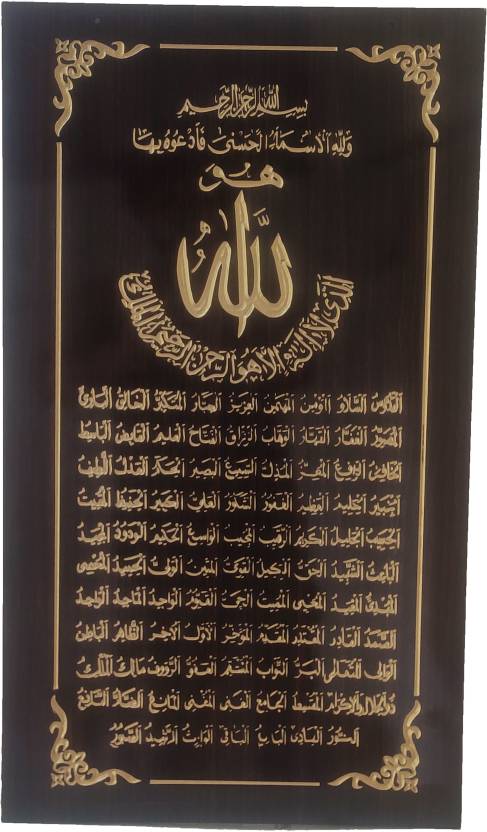 بسم الله الرحمن الرحيم
ولله الاسماء الحسنى فادعوه بها
هو
الله
الذي لا اله الا هو الرحمن الرحيم الملك
القدوس السلام المؤمن المهيمن العزيز الجبار المتكبر الخالق البارئ
المصور الغفار القهار الوهاب الرزاق الفتاح العليم القابض الباسط
الخافض الرافع المعز المذل السميع البصير الحكم العدل اللطيف
الخبير الحليم العظيم الغفور الشكور العلي الكبير الحفيظ المقيت
الحسيب الجليل الكريم الرقيب المجيب الواسع الحكيم الودود المجيد
الباعث الشهيد الحق الوكيل القوي المتين الولي الحميد المحصي
المبدئ المعيد المحيي المميت الحي القيوم الواجد الماجد الواحد
الصمد القادر المقتدر المقدم المؤخر الاول الاخر الظاهر الباطن
الوالي المتعالي البر التواب المنتقم العفو الرؤوف مالك الملك
ذو الجلال والاكرام المقسط الجامع الغني المغني المانع الضار النافع
النور الهادي البديع الباقي الوارث الرشيد الصبور